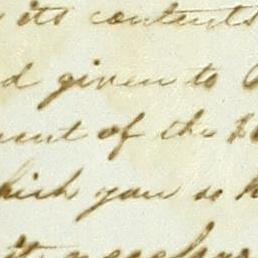 its contents
given to
of the
which you so
it